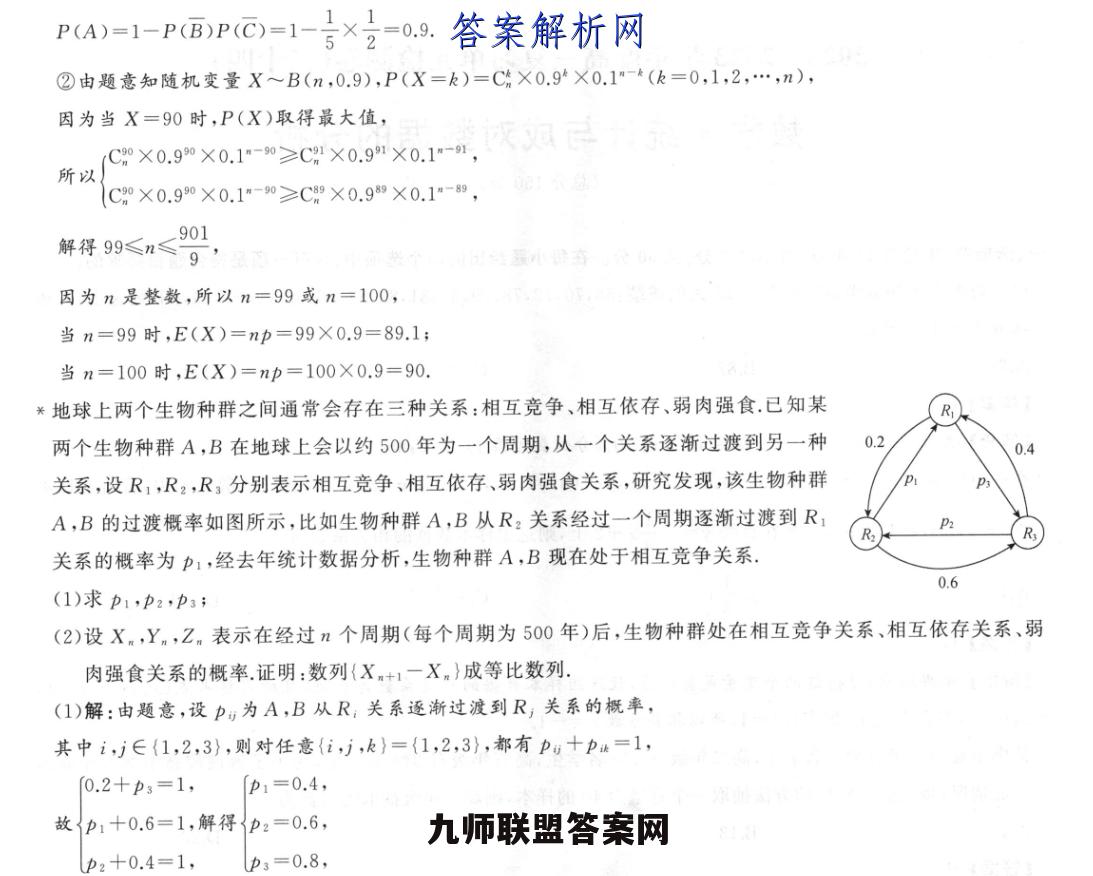 P(A)=1-P(B̅)P(C̅)=1-1/5×1/2=0.9.
答案解析网
②由题意知随机变量 X~B(n,0.9),P(X=k)=Cₙᵏ×0.9ᵏ×0.1ⁿ⁻ᵏ(k=0,1,2,…,n),
因为当 X=90 时,P(X)取得最大值,
所以{Cₙ⁹⁰×0.9⁹⁰×0.1ⁿ⁻⁹⁰≥Cₙ⁹¹×0.9⁹¹×0.1ⁿ⁻⁹¹,
Cₙ⁹⁰×0.9⁹⁰×0.1ⁿ⁻⁹⁰≥Cₙ⁸⁹×0.9⁸⁹×0.1ⁿ⁻⁸⁹,
解得 99≤n≤901/9,
因为 n 是整数,所以 n=99 或 n=100,
当 n=99 时,E(X)=np=99×0.9=89.1;
当 n=100 时,E(X)=np=100×0.9=90.
*地球上两个生物种群之间通常会存在三种关系:相互竞争、相互依存、弱肉强食.已知某
两个生物种群 A,B 在地球上会以约 500 年为一个周期,从一个关系逐渐过渡到另一种
关系,设 R₁,R₂,R₃ 分别表示相互竞争、相互依存、弱肉强食关系,研究发现,该生物种群
A,B 的过渡概率如图所示,比如生物种群 A,B 从 R₂ 关系经过一个周期逐渐过渡到 R₁
关系的概率为 p₁,经去年统计数据分析,生物种群 A,B 现在处于相互竞争关系.
R₁
0.2
0.4
p₁
p₃
R₂
p₂
R₃
0.6
(1)求 p₁,p₂,p₃;
(2)设 Xₙ,Yₙ,Zₙ 表示在经过 n 个周期(每个周期为 500 年)后,生物种群处在相互竞争关系、相互依存关系、弱
肉强食关系的概率.证明:数列{Xₙ₊₁-Xₙ}成等比数列.
(1)解:由题意,设 pᵢⱼ 为 A,B 从 Rᵢ 关系逐渐过渡到 Rⱼ 关系的概率,
其中 i,j∈{1,2,3},则对任意{i,j,k}={1,2,3},都有 pᵢⱼ+pᵢₖ=1,
{0.2+p₃=1, {p₁=0.4,
故{p₁+0.6=1,解得{p₂=0.6,
p₂+0.4=1, p₃=0.8,
九师联盟答案网